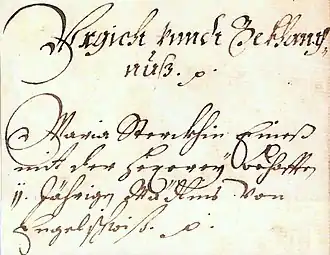 Vrgich vnnd Bekhant,
nuß. p.
Maria Sterckhin Eineß
mit der Hexerey behafften
11. Jährigen Mädlins von
Engelschwiß. p.